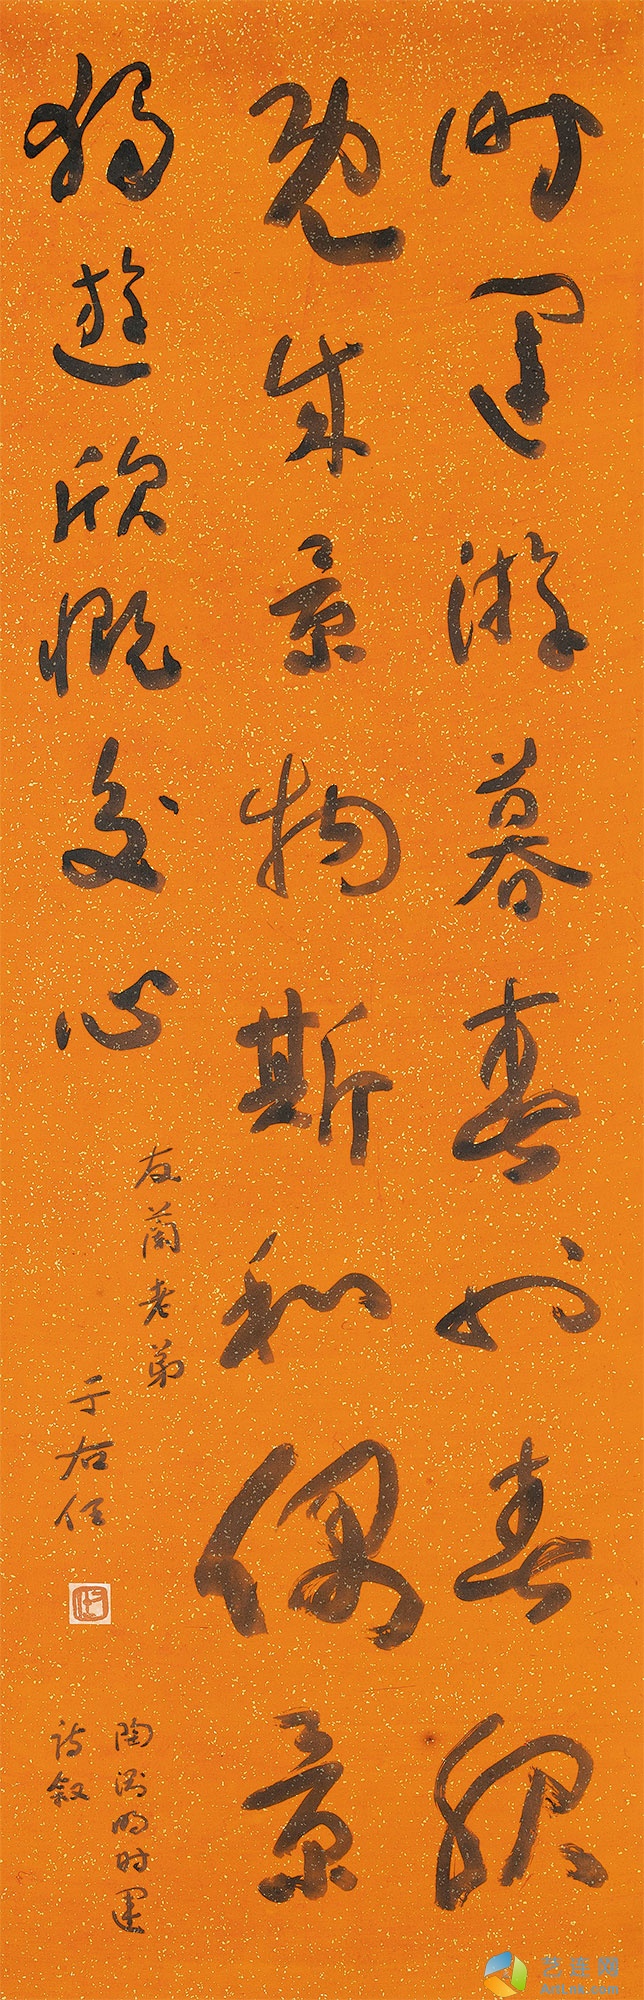 時運游暮春也春服
既成景物斯和偶景
獨遊欣慨交心
友蘭老弟
于右任
陶淵明時運
詩敘
艺连网
ArtLnk.com